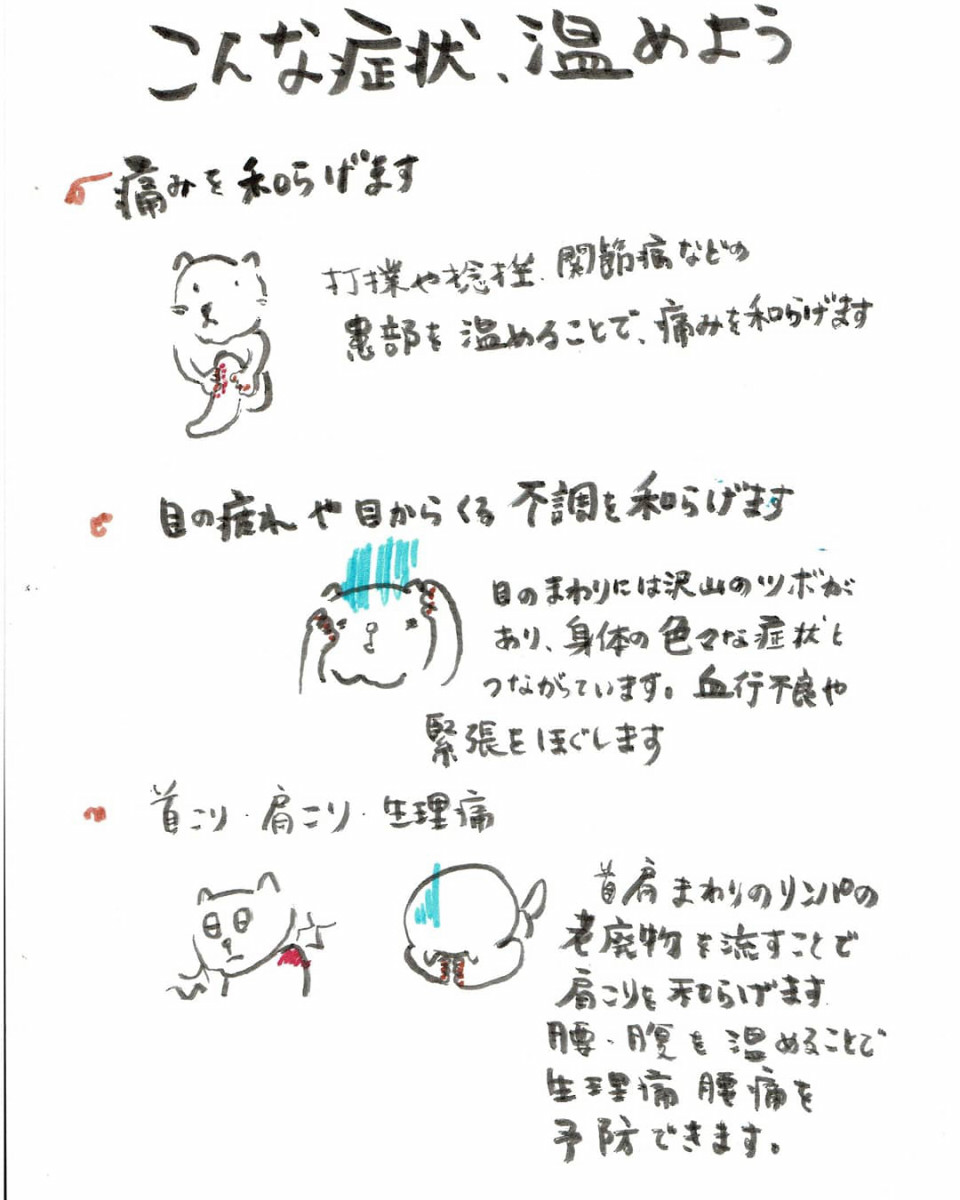 こんな症状、温めよう
痛みを和らげます
打撲や捻挫、関節病などの
患部を温めることで、痛みを和らげます
目の疲れや目からくる不調を和らげます
目のまわりには沢山のツボが
あり、身体の色々な症状と
つながっています。血行不良や
緊張をほぐします
首こり・肩こり・生理痛
首肩まわりのリンパの
老廃物を流すことで
肩こりを和らげます
腰・腹を温めることで
生理痛 腰痛を
予防できます。